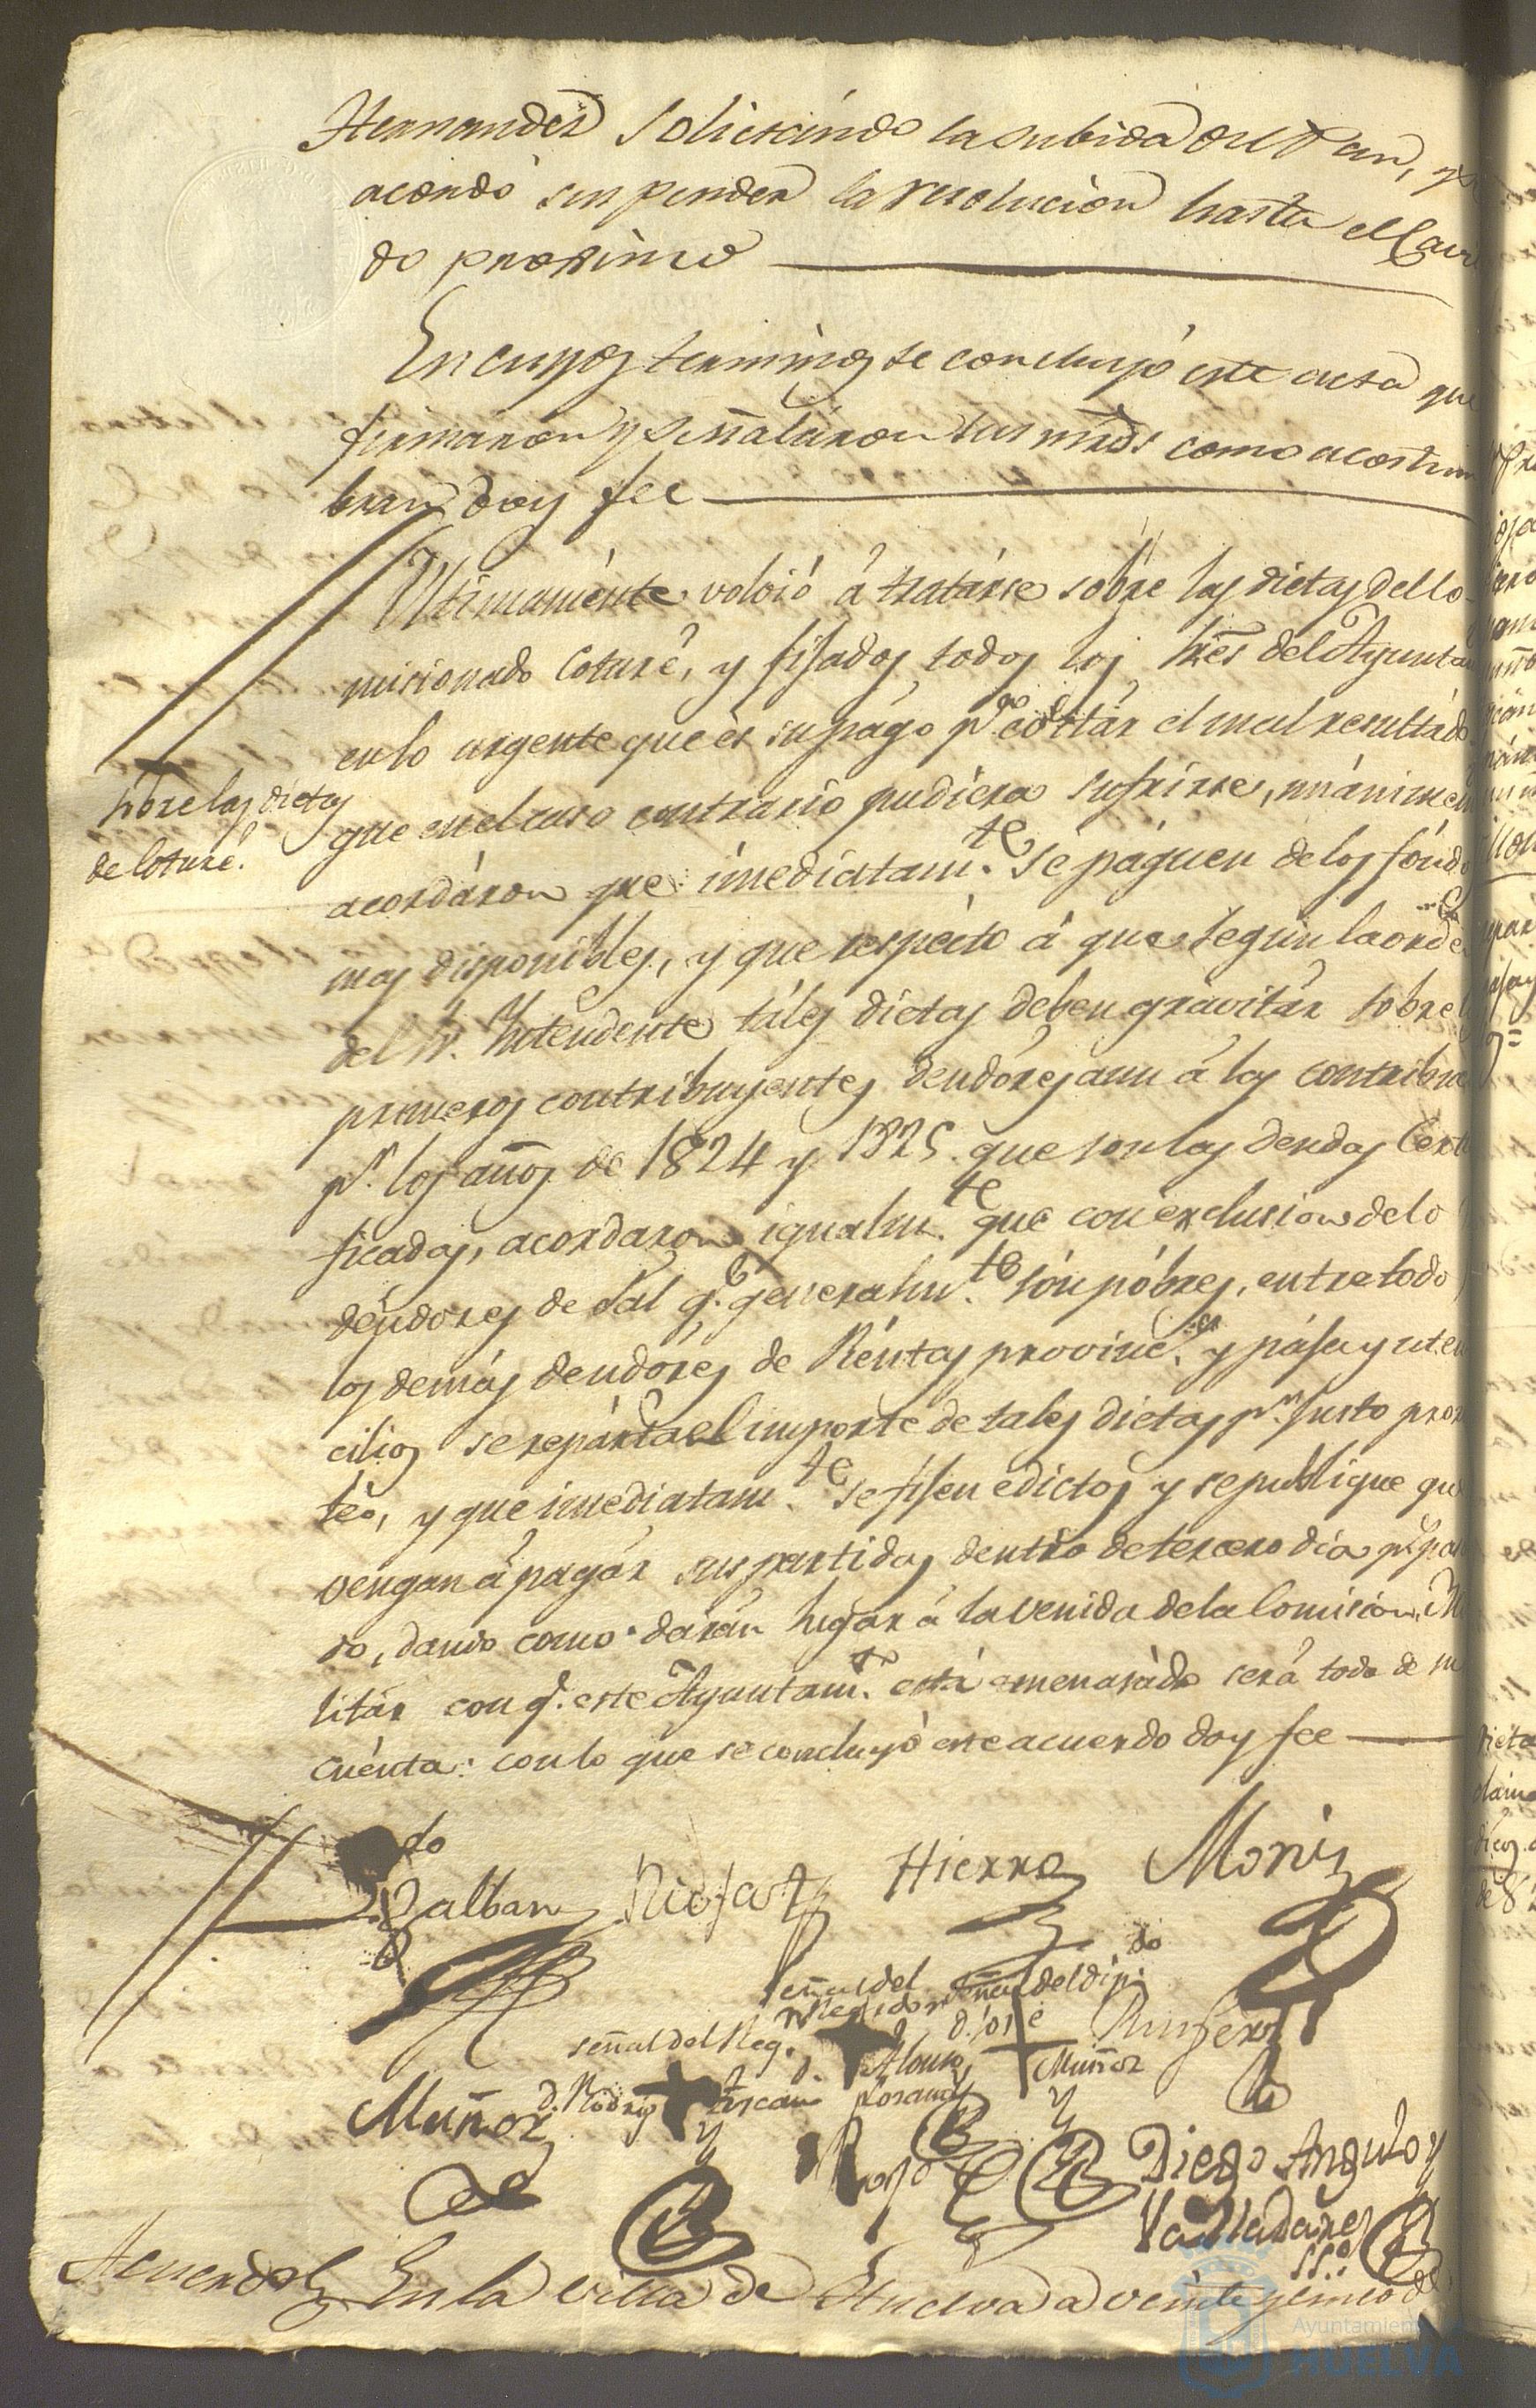 Hernandez solicitando la subida del Pan, se
acordó suspender la resolucion hasta el Cavil
do proximo
En cuyos terminos se concluyó este acta que
firmaron y Señalaron sus mrds como acostum
bran doy fee
Ultimamente volvió á tratárse sóbre las dietas del Co-
misionado Coturé, y fijados todos los Sres del Ayuntam
en lo urgente que és su págo pa. cortár el mal resultado
que en el caso contrario pudiéra sufrirse, unánimem
Sobre las dietas
de Coturé.
acordáron que imediatamte. se páguen de los fóndos
mas disponibles, y que respécto á que segun la orden
del Sr. Yntendente táles dietas deben gravitár sobre los
primeros contribuyentes deudóres aun á las contribu
pr. los años de 1824 y 1825. que son las deudas Certi
ficadas, acordaron igualmte. que con exclusion de lo
déudores de Sal q. generalmte. són póbres, entre todo
los demás deudóres de Réntas provinc.s y pája y uten
cilios se repárta el importe de tales dietas pr. justo pror
téo, y que imediatamte. se fijen edictos y se publique que
vengan á pagár sus partidas dentro de tercero dia
do, danso como darán lugár á la venida de la Comision Mi
litár con q. este Ayuntamto. está amenazádo será todo de su
cuénta: con lo que se concluyó este acuerdo doy fee
do
Balban Hierro Moris
Señal del
Regidor
Señal del dip.do
señal del Reg.
d. José
d. Alonso
Muñoz
Muñoz
d. Rodrig
Rojo
Diego Angulo y
Valladares
SSo
Acuerdo En la villa de Huelva a veinte y cinco de
Ayuntamiento de
HUELVA